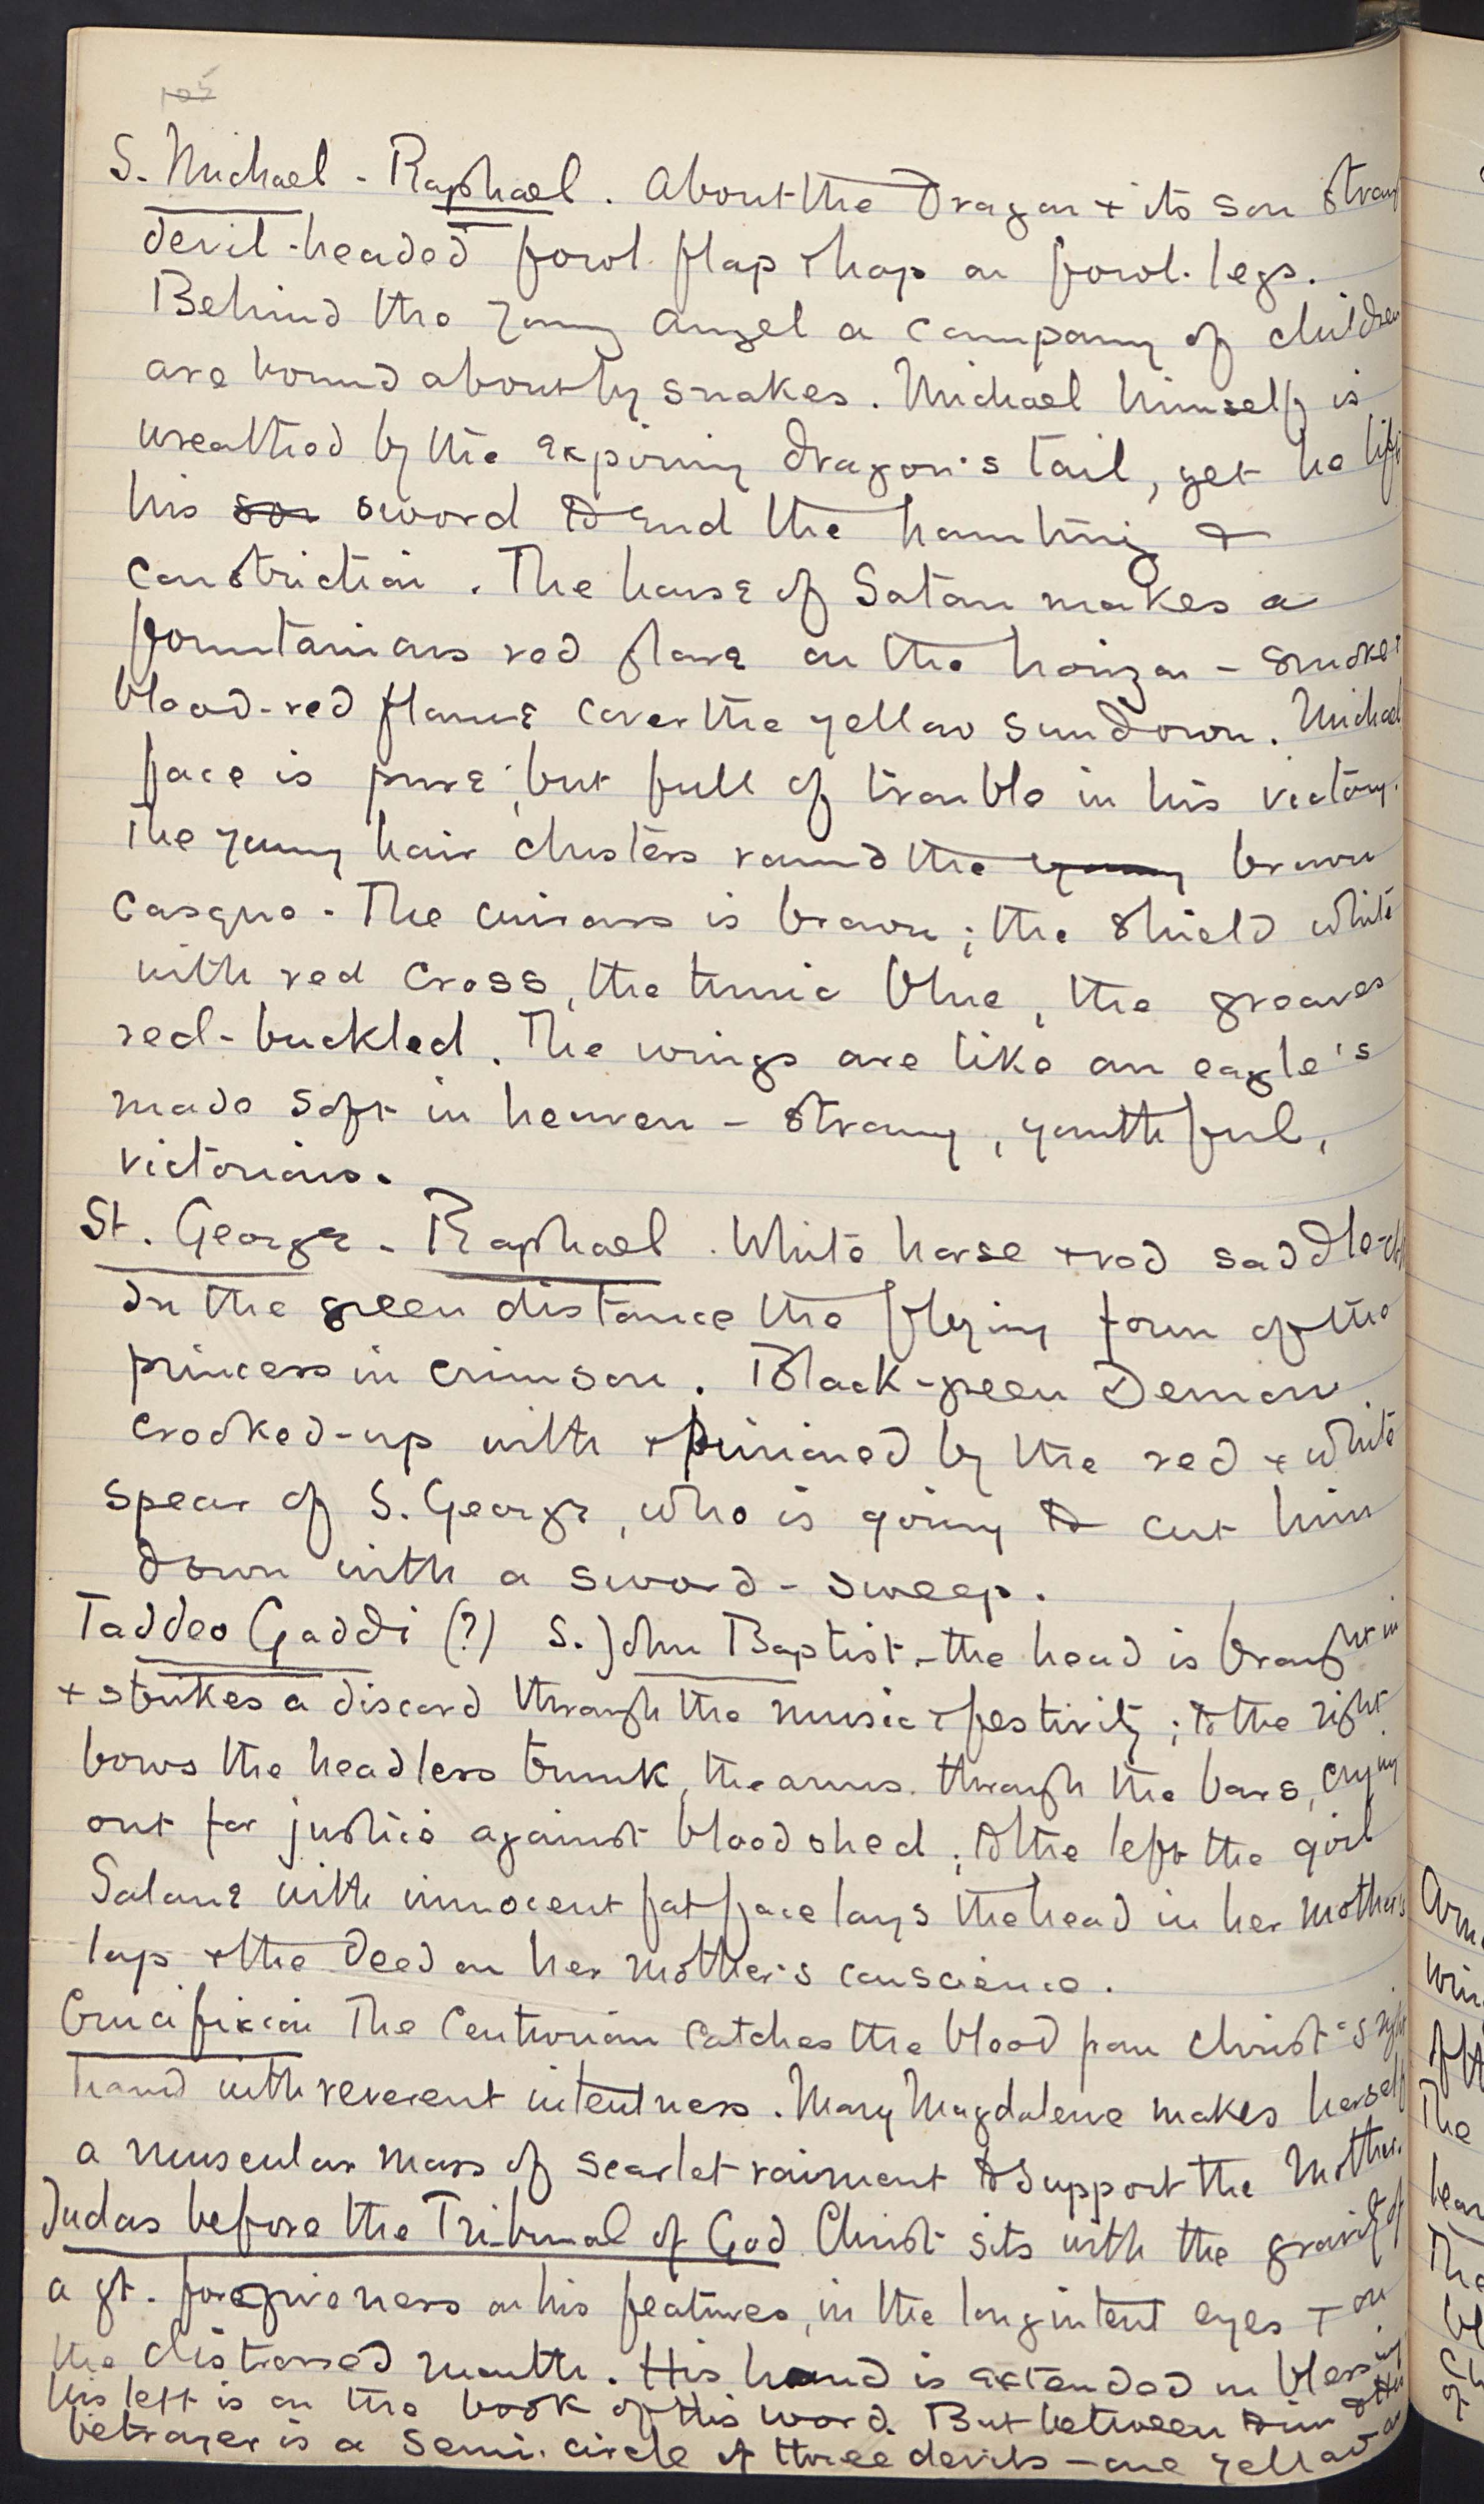 105
S. Michael - Raphael. About the Dragon + its son strange
devil-headed fowl flap + hop on fowl-legs.
Behind the young angel a company of children
are bound about by snakes. Michael himself is
wreathed by the expiring dragon's tail, yet he lifts
his son sword to end the haunting &
constriction. The house of Satan makes a
fountainous red flare on the horizon - smoke +
blood-red flame cover the yellow sundown. Michael
face is pure; but full of trouble in his victory.
The young hair clusters round the young brown
casque. The cuirass is brown; the shield white
with red cross, the tunic blue, the greaves
red-buckled. The wings are like an eagle's
made soft in heaven - strong, youthful,
victorious.
St. George - Raphael. White horse + red saddle-
In the green distance the flying form of the
princess in crimson. Black-green Demon
crooked-up with + pinioned by the red + white
spear of S. George, who is going to cut him
down with a sword-sweep.
Taddeo Gaddi (?) S. John Baptist - the head is brought in
+ strikes a discord through the music + festivity; to the right
bows the headless trunk, the arms through the bars, crying
out for justice against bloodshed; to the left the girl
Salome with innocent fat face lays the head in her mother's
lap + the deed on her mother's conscience.
Crucifixion The Centurion catches the blood from Christ's right
hand with reverent intentness. Mary Magdalene makes herself
a muscular mass of scarlet raiment to support the Mother.
Judas before the Tribunal of God Christ sits with the gravity of
a gt. forgiveness on his features, in the long intent eyes + on
the distressed mouth. His hand is extended in blessing
his left is on the book of His word. But between Him & the
betrayer is a semi-circle of three devils - one yellow